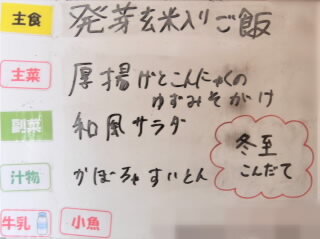 主食 発芽玄米入りご飯
主菜 厚揚げとこんにゃくの
ゆずみそがけ
副菜 和風サラダ
汁物 かぼちゃすいとん
冬至
こんだて
牛乳 小魚